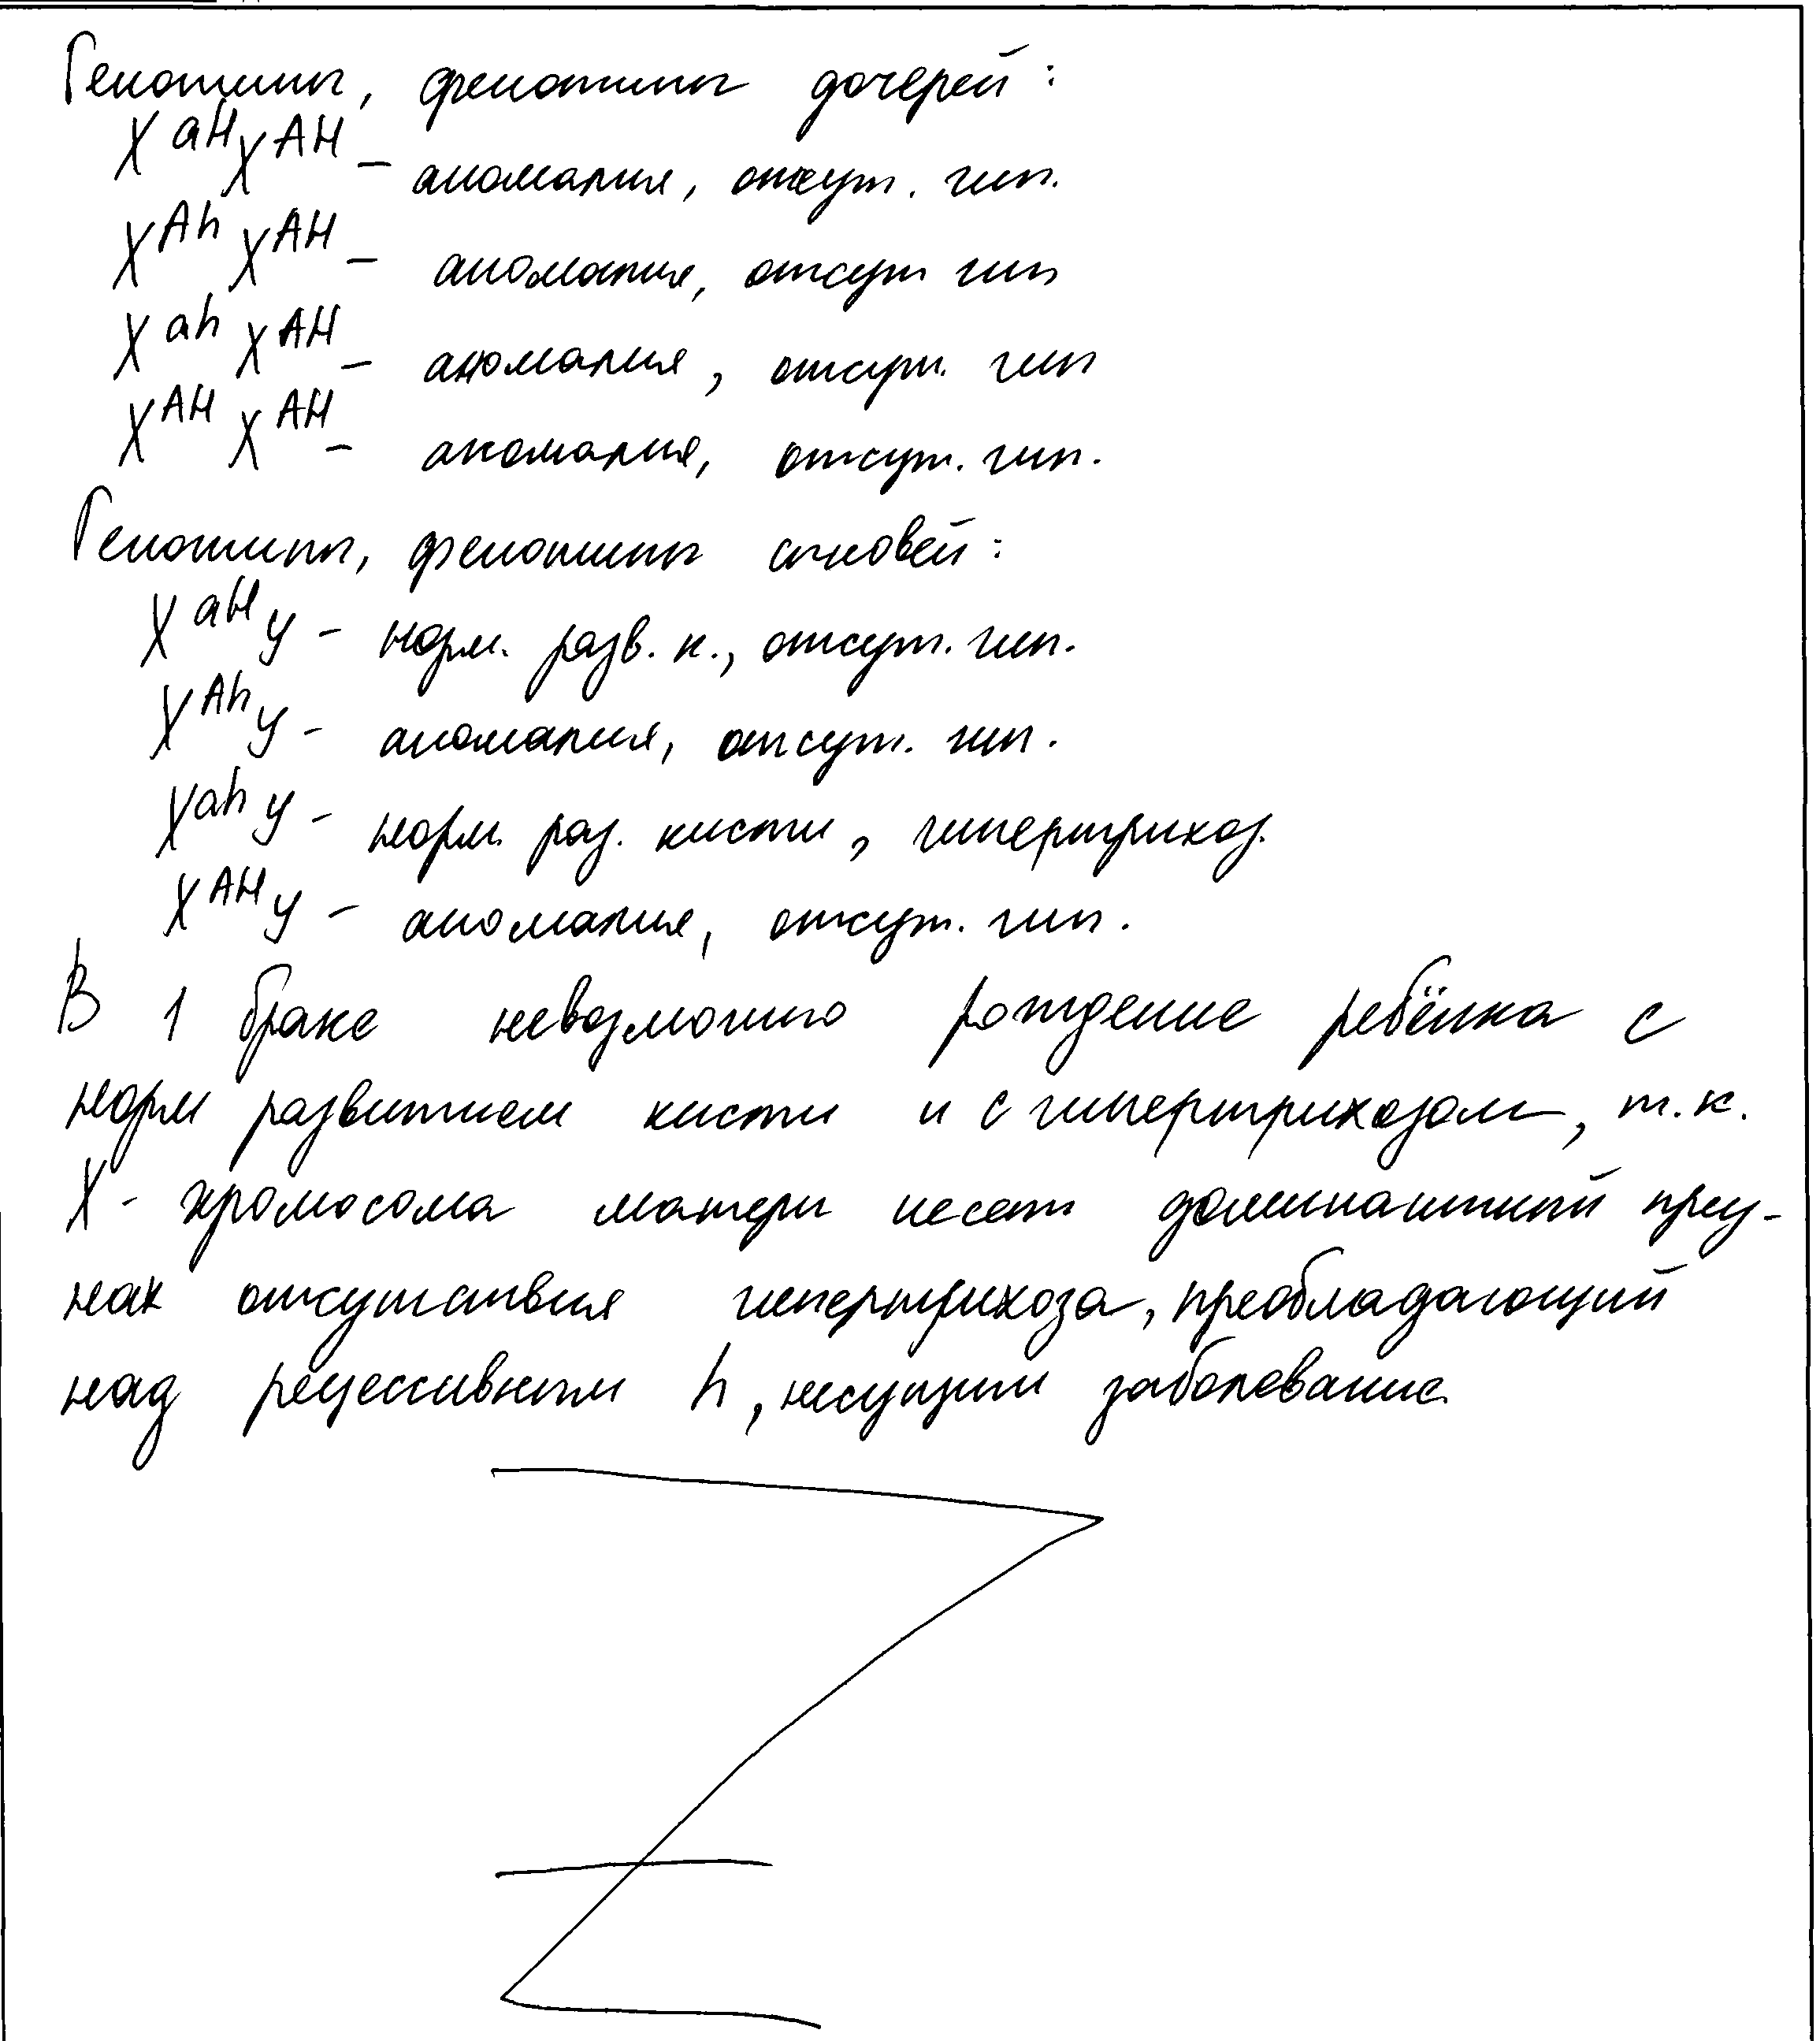 Генотипы, фенотипы дочерей:
X^aH X^AH – аномалия, отсут. гип.
X^Ah X^AH – аномалия, отсут гип
X^ah X^AH – аномалия, отсут. гип
X^AH X^AH – аномалия, отсут. гип.
Генотипы, фенотипы сыновей:
X^aH y – норм. разв. к., отсут. гип.
X^Ah y – аномалия, отсут. гип.
X^ah y – норм. раз. кисти, гипертрихоз.
X^AH y – аномалия, отсут. гип.
В 1 браке невозможно рождение ребёнка с
норм развитием кисти и с гипертрихозом, т.к.
X - хромосома матери несет доминантный приз-
нак отсутствия гипертрихоза, преобладающий
над рецессивным h, несущим заболевание.
Z